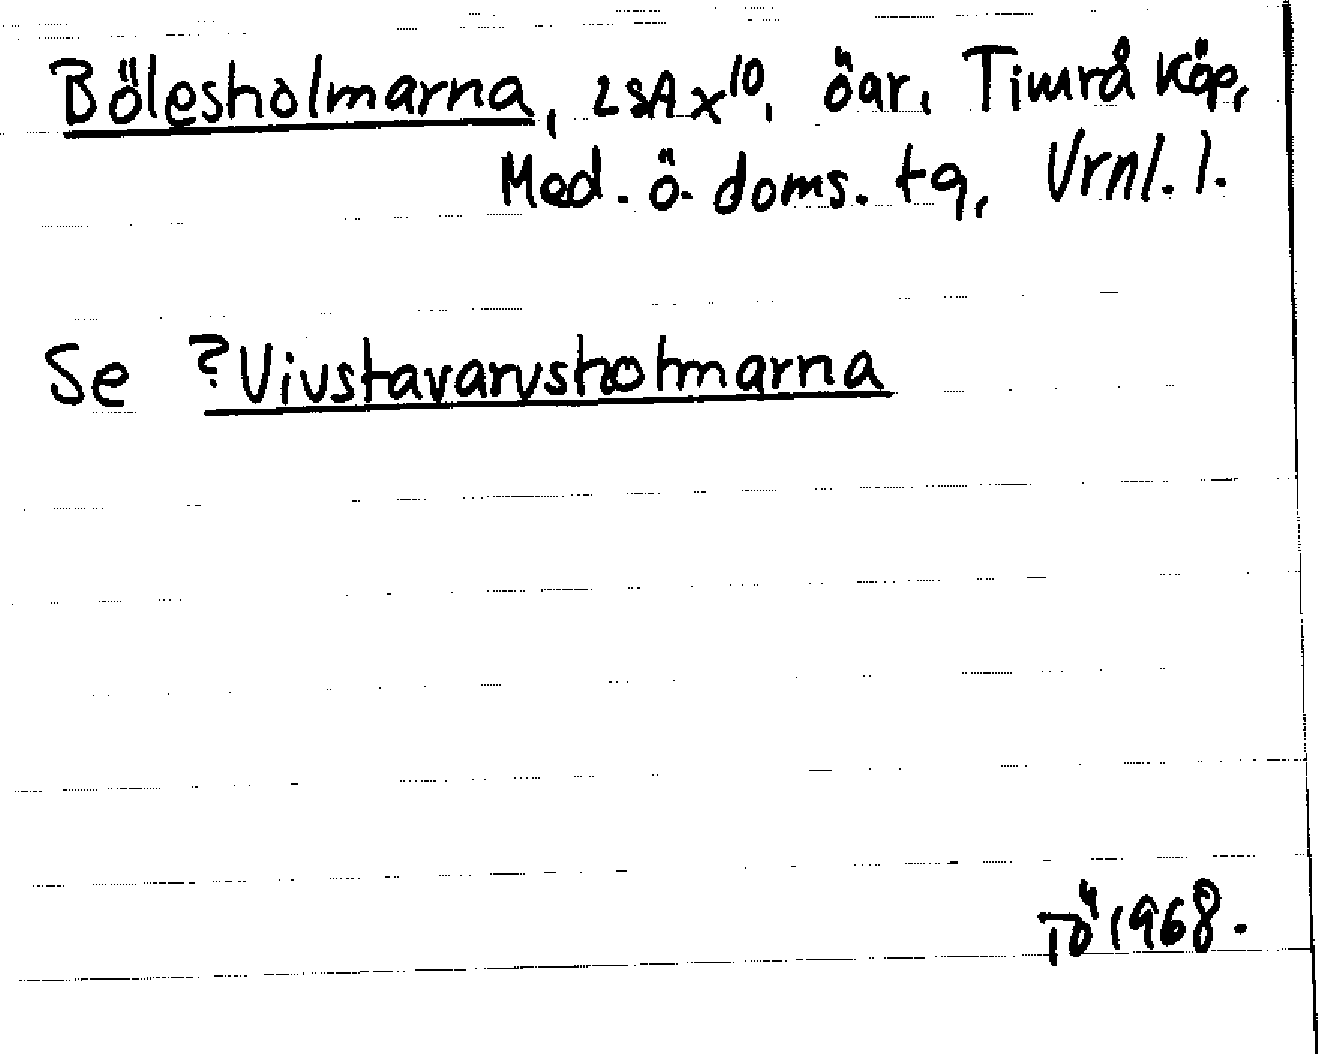 Bölesholmarna, 2SAx¹⁰, öar, Timrå köp,
Med. ö. doms. tg, Vrnl. l.
Se ?Vivstavarvsholmarna
TÖ 1968.